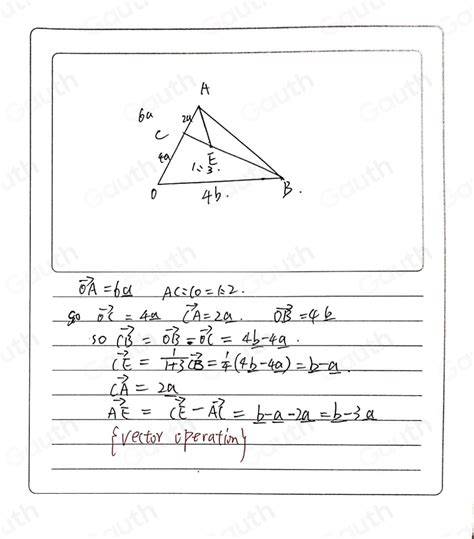 A
6a
2a
C
4a
E
1:3.
O
4b.
B.
→OA = 6a AC:CO = 1:2.
go →OC = 4a →CA = 2a. →OB = 4b
so →CB = →OB - →OC = 4b-4a.
→CE = 1/(1+3) →CB = 1/4(4b-4a) = b-a.
→CA = 2a
→AE = →CE - →AC = b-a-2a = b-3a
{vector operation}
Gauth